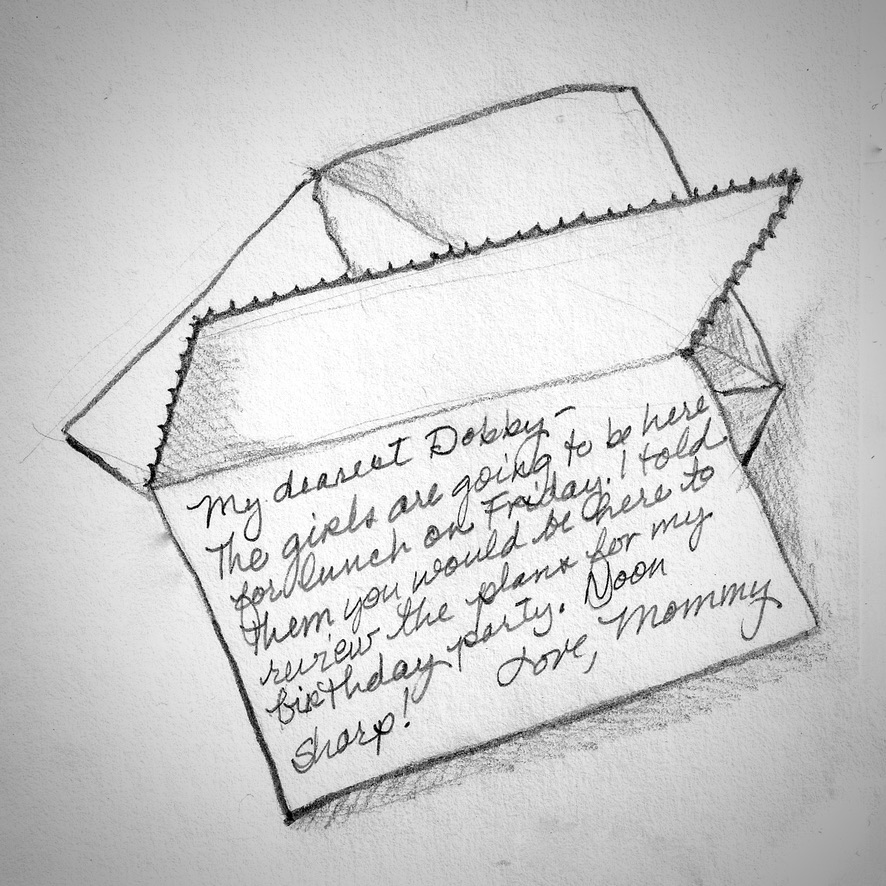 My dearest Dobby-
The girls are going to be here
for lunch on Friday. I told
them you would be here to
review the plans for my
birthday party. Noon
sharp! Love, Mommy